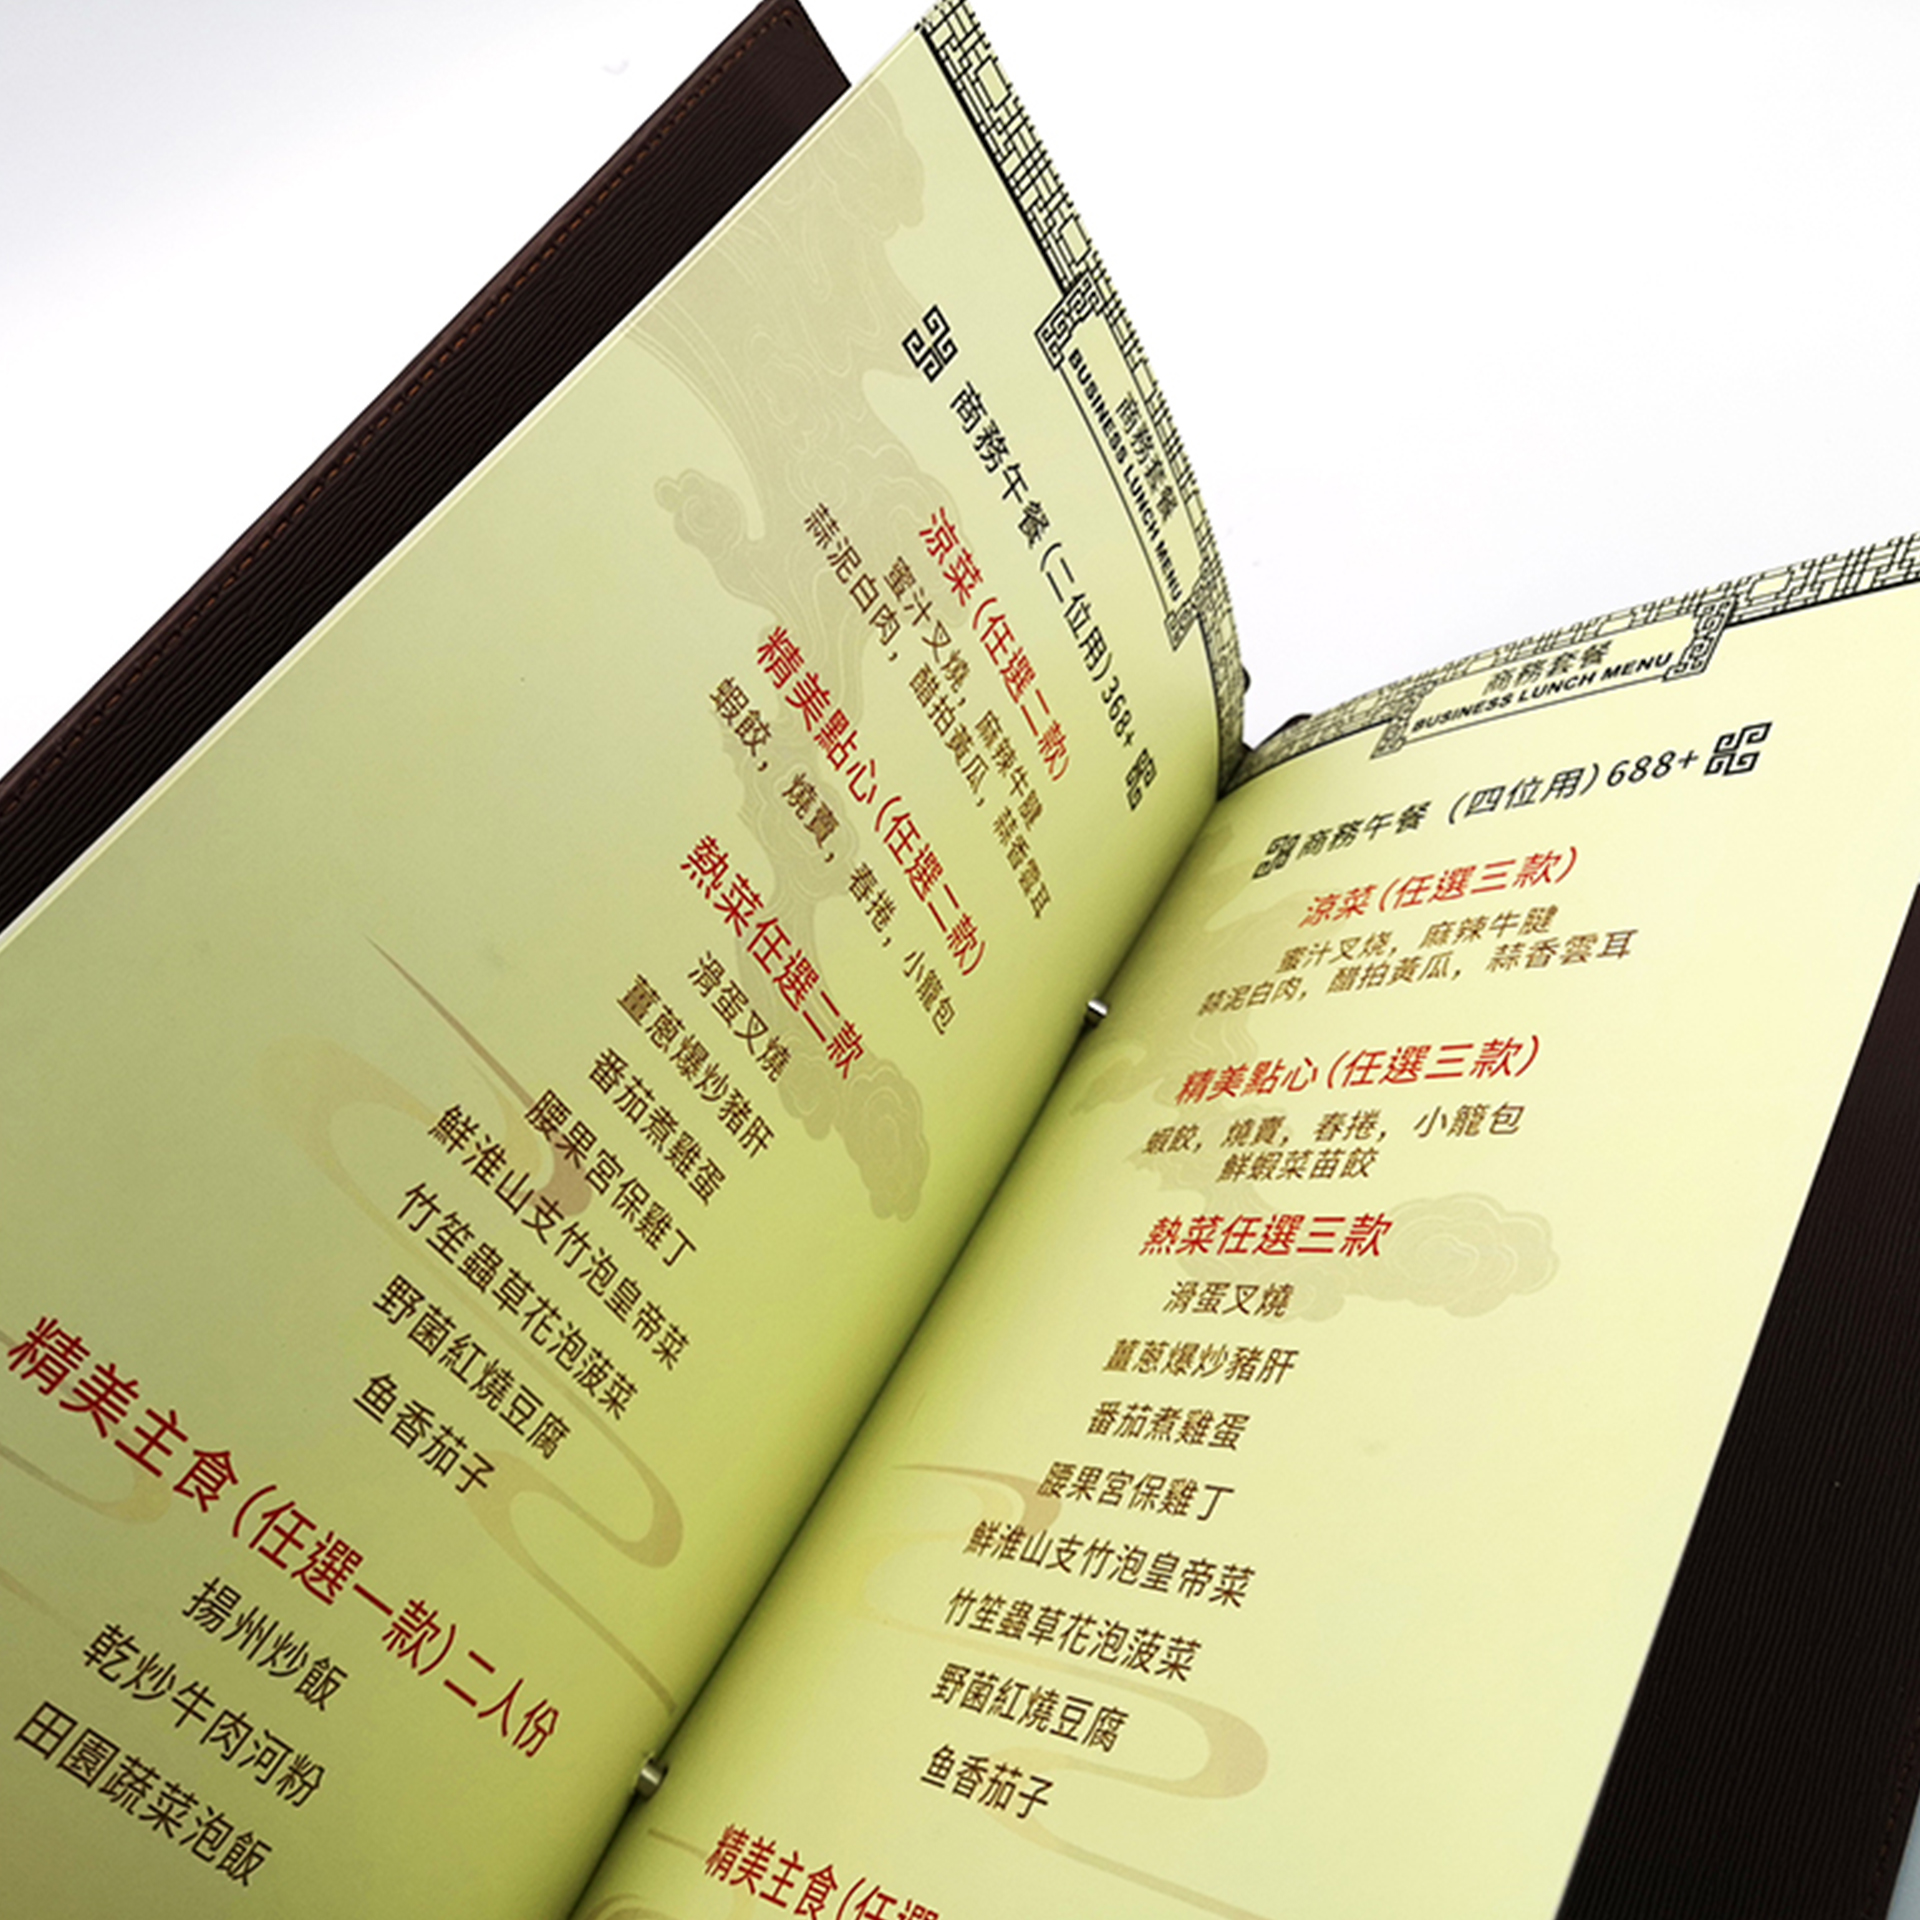 商務套餐
BUSINESS LUNCH MENU
商務午餐(二位用)368+
涼菜(任選二款)
蜜汁叉燒，麻辣牛腱
蒜泥白肉，醋拍黃瓜，蒜香雲耳
精美點心(任選二款)
蝦餃，燒賣，春捲，小籠包
熱菜任選二款
滑蛋叉燒
薑蔥爆炒豬肝
番茄煮雞蛋
腰果宮保雞丁
鮮淮山支竹泡皇帝菜
竹笙蟲草花泡菠菜
野菌紅燒豆腐
鱼香茄子
精美主食(任選一款)二人份
揚州炒飯
乾炒牛肉河粉
田園蔬菜泡飯
商務套餐
BUSINESS LUNCH MENU
商務午餐(四位用)688+
涼菜(任選三款)
蜜汁叉燒，麻辣牛腱
蒜泥白肉，醋拍黃瓜，蒜香雲耳
精美點心(任選三款)
蝦餃，燒賣，春捲，小籠包
鮮蝦菜苗餃
熱菜任選三款
滑蛋叉燒
薑蔥爆炒豬肝
番茄煮雞蛋
腰果宮保雞丁
鮮淮山支竹泡皇帝菜
竹笙蟲草花泡菠菜
野菌紅燒豆腐
鱼香茄子
精美主食(任選